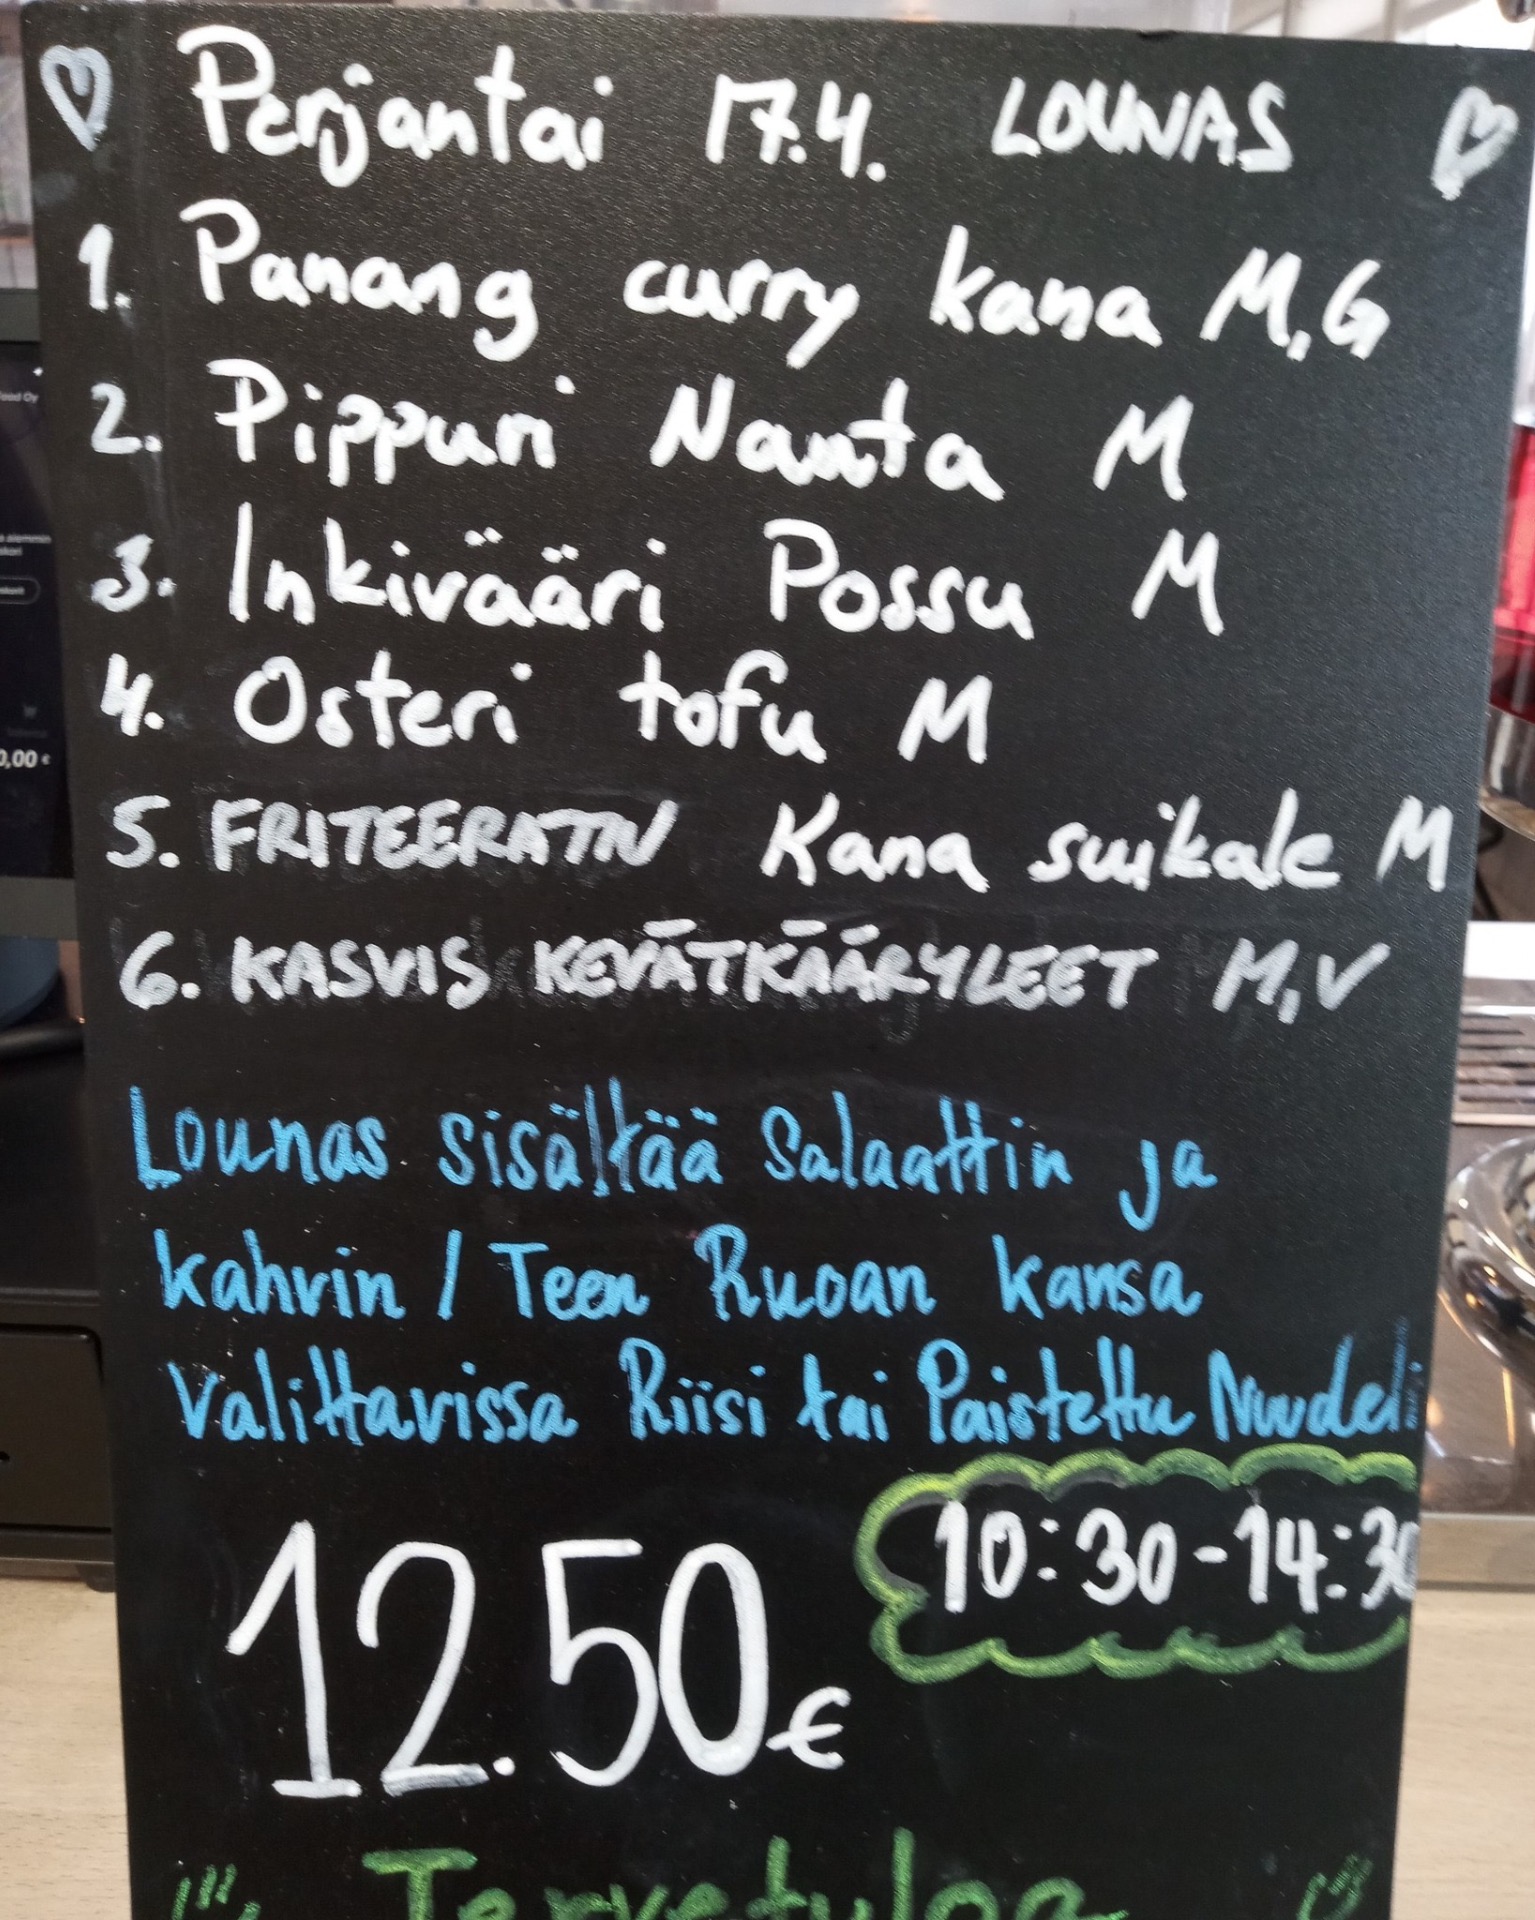 Perjantai 17.4. LOUNAS
1. Panang curry kana M,G
2. Pippuri Nauta M
3. Inkivääri Possu M
4. Osteri tofu M
5. FRITEERATTU Kana suikale M
6. KASVIS KEVÄTKÄÄRYLEET M,V
Lounas sisältää Salaattin ja
kahvin / Teen Ruoan kansa
Valittavissa Riisi tai Paistettu Nuudeli
10:30-14:30
12.50€
Tervetuloa
Food Oy
0,00 €